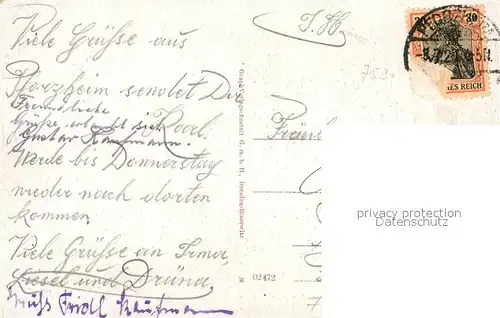 Viele Grüsse aus
Pforzheim sendet Dir
Freundliche
Grüsse erlaubt sich
Karl.
Gustav Kaufmann.
Werde bis Donnerstag
wieder nach dorten
kommen.
Viele Grüsse an Irma,
Liesel und
Gruss Fridl Kaufmann
Graph. Verlags-Anstalt G. m. b. H., Dresden-Blasewitz
02472
30
30
PFORZHEIM
REICH
privacy protection
Datenschutz